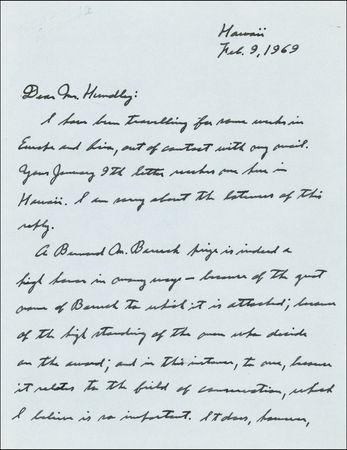 Hawaii
Feb. 9, 1969
Dear Mr. Hundley:
I have been travelling for some weeks in
Europe and Asia, out of contact with my mail.
Your January 9th letter reaches me here in
Hawaii. I am sorry about the lateness of this
reply.
A Bernard M. Baruch prize is indeed a
high honor in many ways — because of the great
name of Baruch to which it is attached; because
of the high standing of the men who decide
on the award; and in this instance, to me, because
it relates to the field of conservation, which
I believe is so important. It does, however,